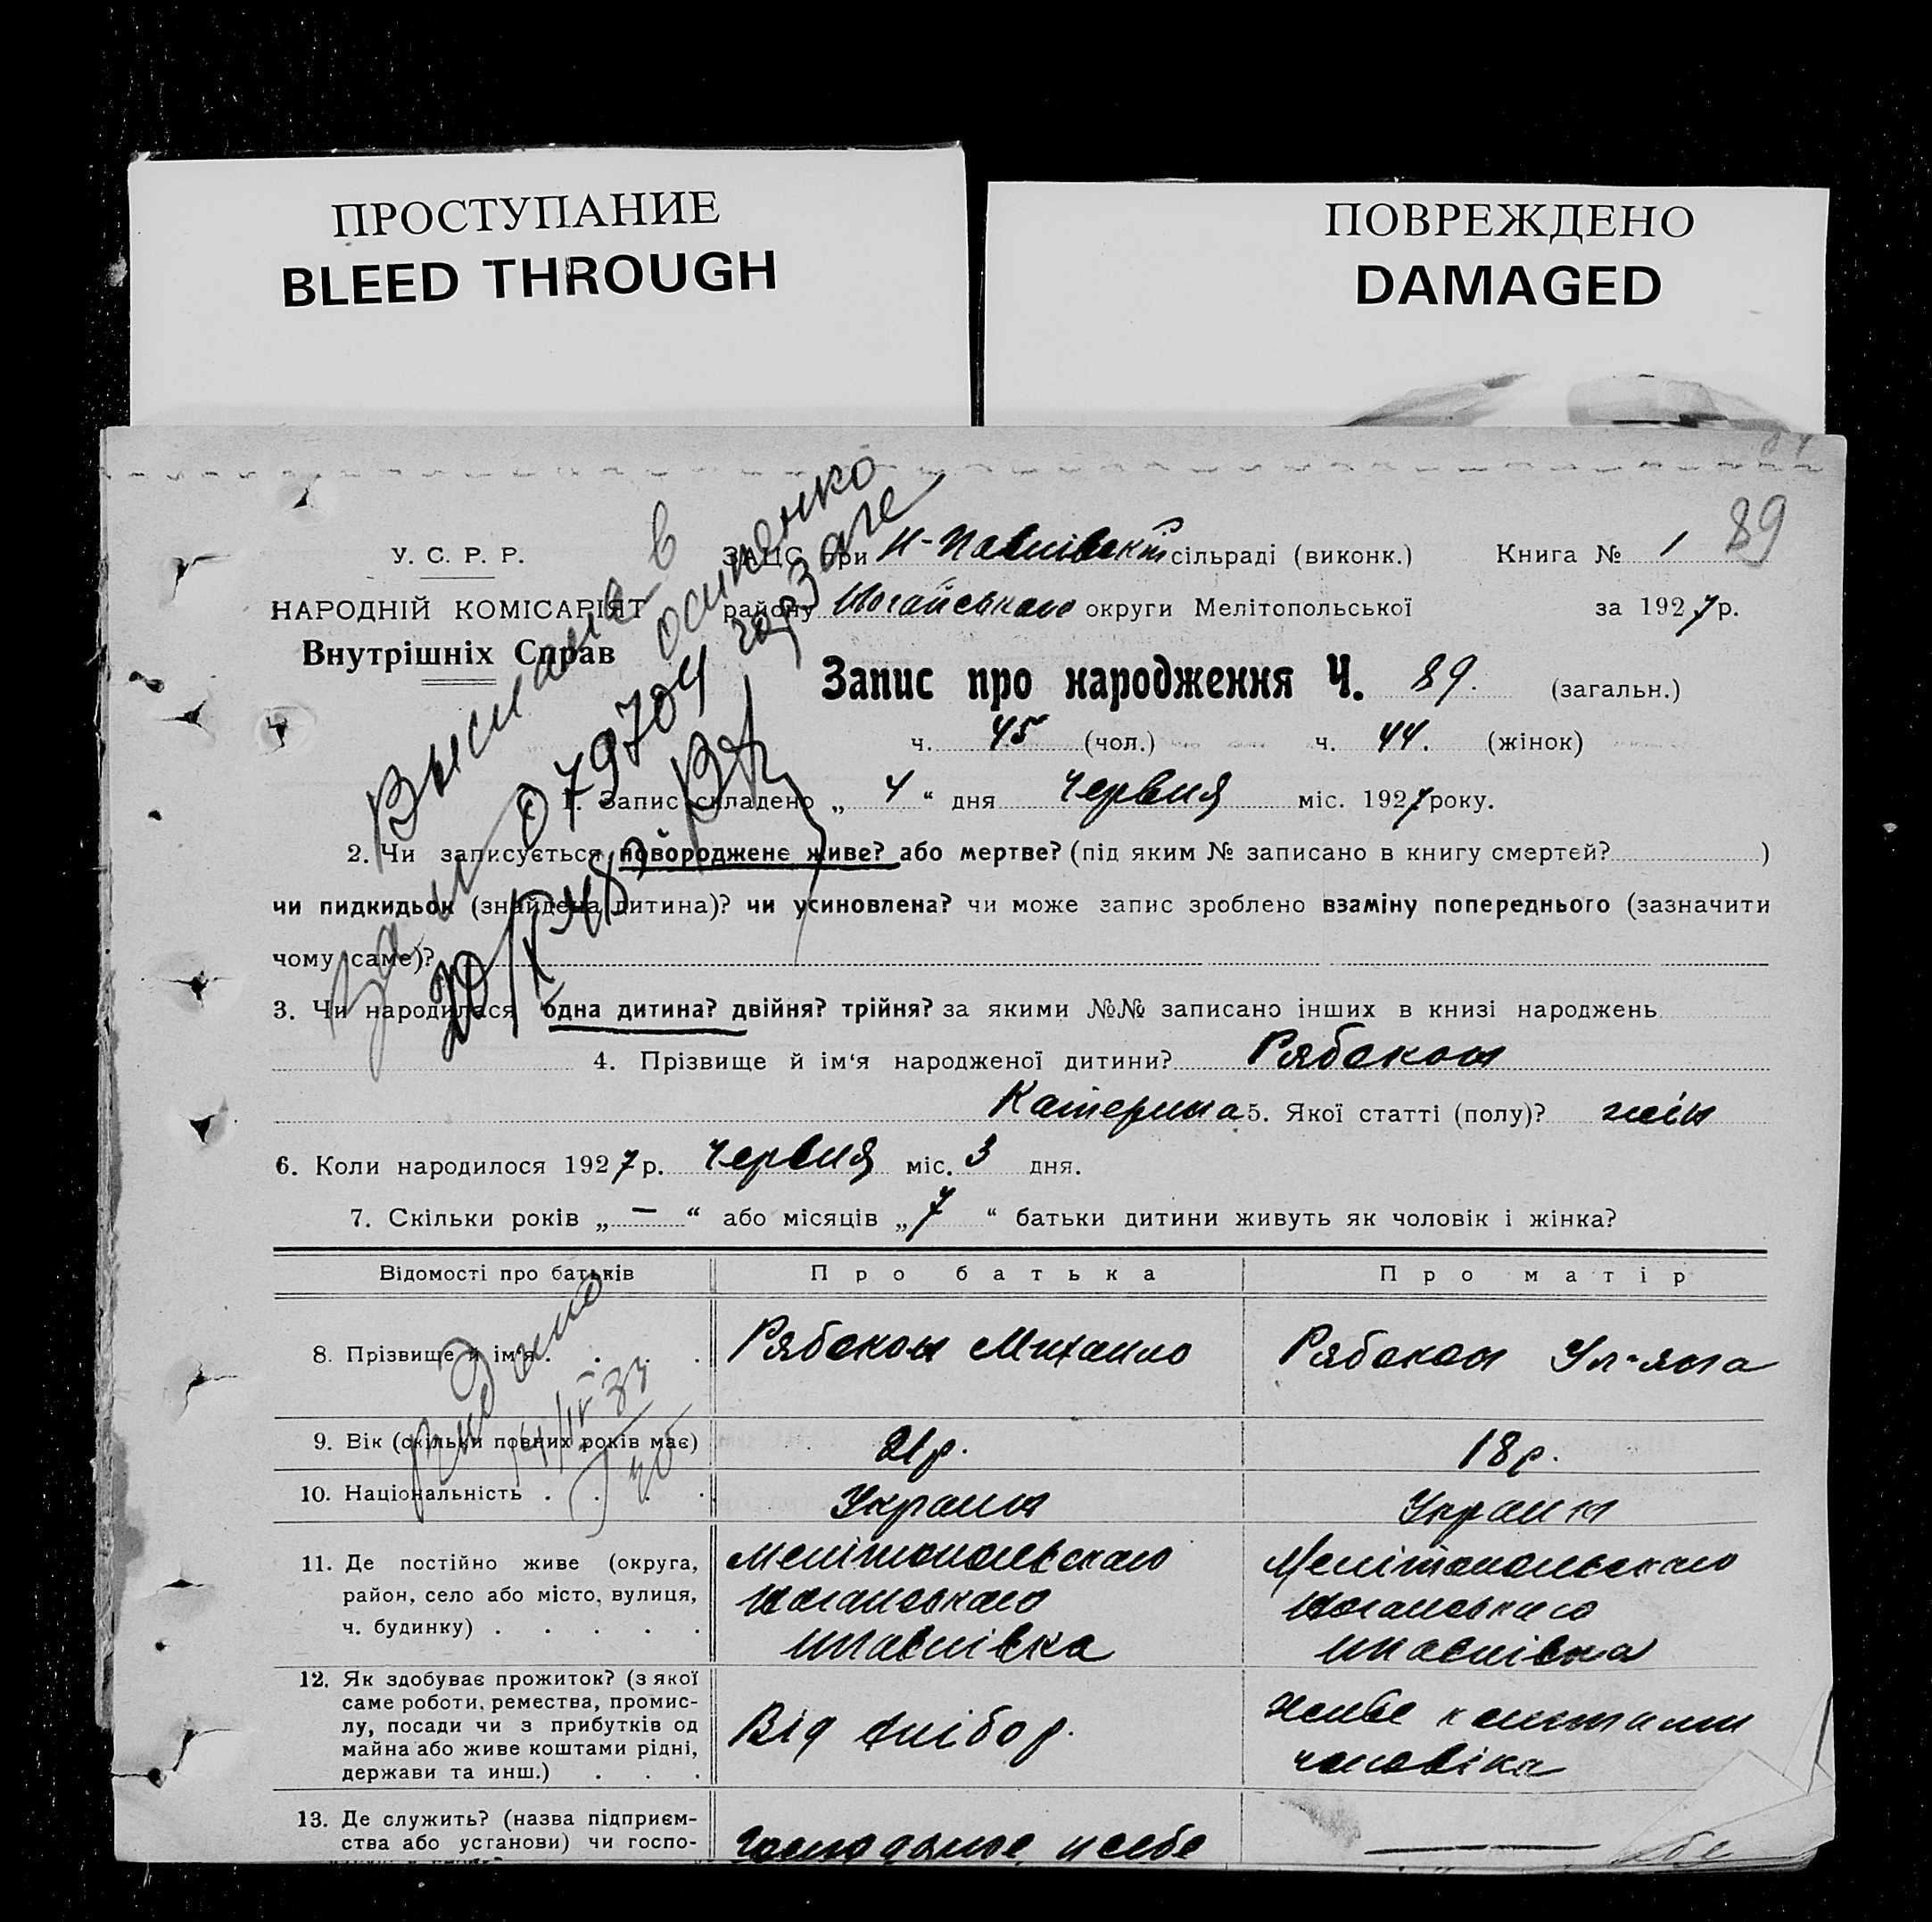 ПРОСТУПАНИЕ
BLEED THROUGH
ПОВРЕЖДЕНО
DAMAGED
89
У. С. Р. Р.
НАРОДНІЙ КОМІСАРІЯТ
Внутрішніх Справ
ЗАЦС при Н-Павлівскій сільраді (виконк.) Книга № 1
району Ногайського округи Мелітопольської за 1927 р.
Запис про народження Ч. 89. (загальн.)
ч. 45 (чол.) ч. 44. (жінок)
1. Запис складено „ 4 “ дня Червня міс. 1927 року.
2. Чи записується новороджене живе? або мертве? (під яким № записано в книгу смертей? )
чи пидкидьок (знайдена дитина)? чи усиновлена? чи може запис зроблено взаміну попереднього (зазначити
чому саме)?
3. Чи народилася одна дитина? двійня? трійня? за якими №№ записано інших в книзі народжень
4. Прізвище й ім‘я народженої дитини? Рябокон
Катерина 5. Якої статті (полу)? жін
6. Коли народилося 1927 р. Червня міс. 3 дня.
7. Скільки років „ — “ або місяців „ 7 “ батьки дитини живуть як чоловік і жінка?
Відомості про батьків Про батька Про матір
8. Прізвище й ім‘я . . . . Рябокон Михаило Рябокон Ул-яна
9. Вік (скільки повних років має) 21 р. 18 р.
10. Національність . . . . Украин Украин
11. Де постійно живе (округа,
район, село або місто, вулиця,
ч. будинку) . . . . .
Мелітопольского
Ногайського
НПавлівка
Мелітопольского
Ногайського
НПавлівка
12. Як здобуває прожиток? (з якої
саме роботи, ремества, промис-
лу, посади чи з прибутків од
майна або живе коштами рідні,
держави та инш.) . . .
Від хлібор.
живе коштами
чоловіка
13. Де служить? (назва підприєм-
ства або установи) чи госпо-
у себе
Выслана в
079704
20/IX 48
Видано
14/IV 33